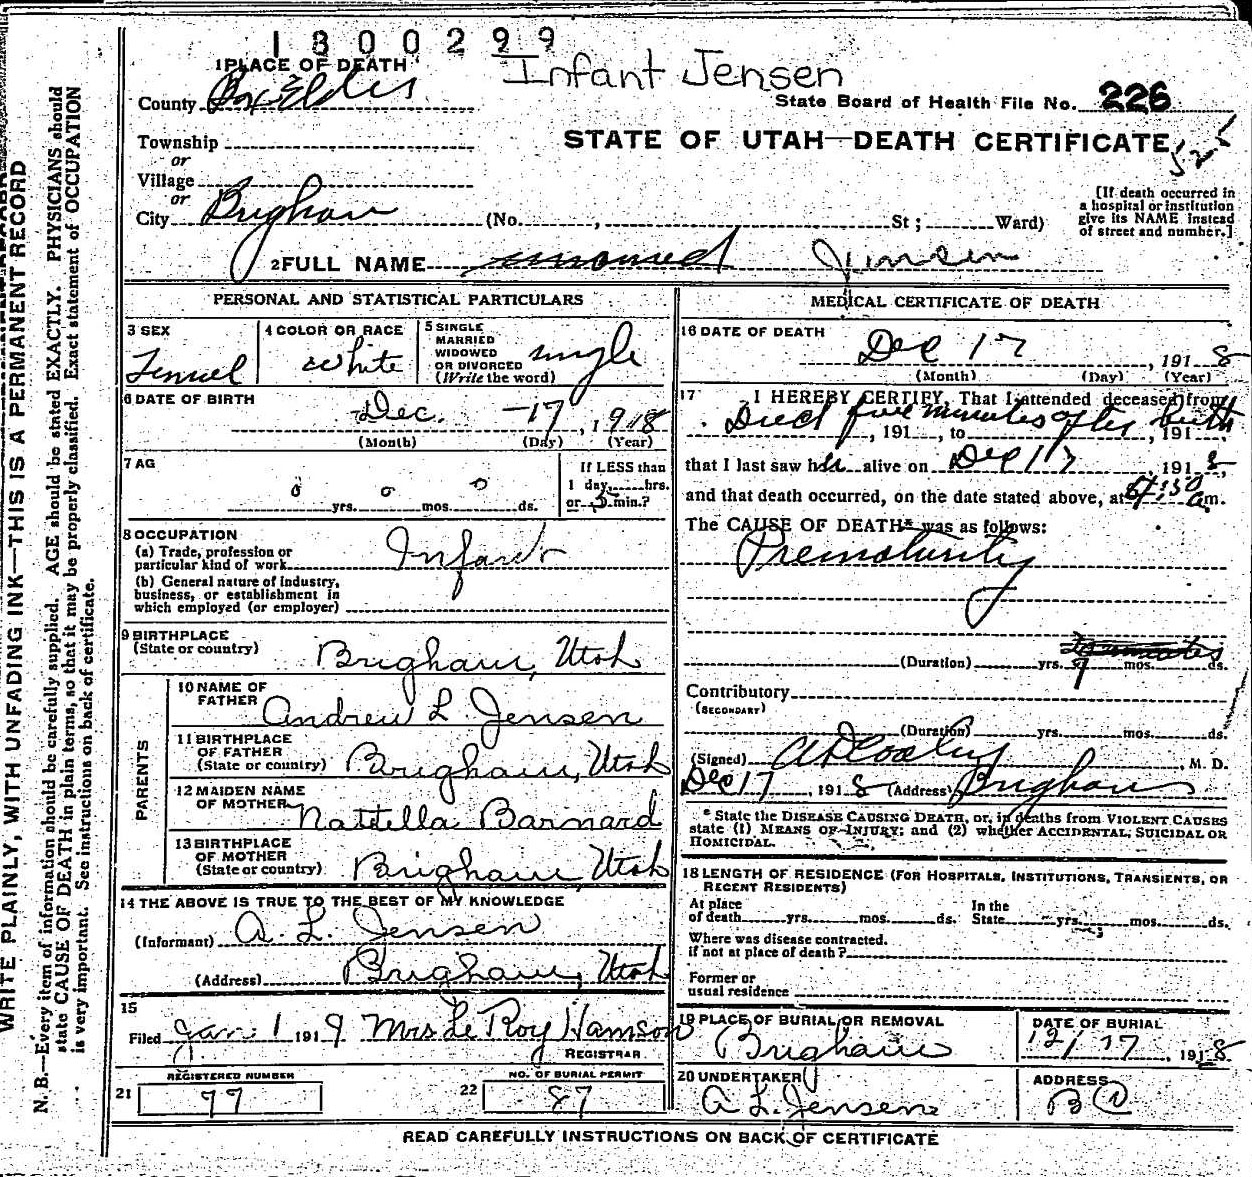 1800299
Infant Jensen
1 PLACE OF DEATH
County Box Elder
State Board of Health File No. 226
Township
STATE OF UTAH—DEATH CERTIFICATE
or
Village
or
City Brigham (No. , St ; Ward)
[If death occurred in
a hospital or institution
give its NAME instead
of street and number.]
2 FULL NAME unnamed Jensen
PERSONAL AND STATISTICAL PARTICULARS
3 SEX
Femel
4 COLOR OR RACE
White
5 SINGLE
MARRIED
WIDOWED
OR DIVORCED
(Write the word)
single
6 DATE OF BIRTH
Dec. -17, 1918
(Month) (Day) (Year)
7 AG
0 yrs. 0 mos. 0 ds.
If LESS than
1 day, hrs.
or 5 min.?
8 OCCUPATION
(a) Trade, profession or
particular kind of work Infant
(b) General nature of industry,
business, or establishment in
which employed (or employer)
9 BIRTHPLACE
(State or country) Brigham, Utah
PARENTS
10 NAME OF
FATHER Andrew L. Jensen
11 BIRTHPLACE
OF FATHER
(State or country) Brigham, Utah
12 MAIDEN NAME
OF MOTHER Natella Barnard
13 BIRTHPLACE
OF MOTHER
(State or country) Brigham, Utah
14 THE ABOVE IS TRUE TO THE BEST OF MY KNOWLEDGE
(Informant) A. L. Jensen
(Address) Brigham, Utah
15
Filed Jan 1 1919 Mrs Le Roy Hamson
REGISTRAR
REGISTERED NUMBER
21 77
NO. OF BURIAL PERMIT
22 87
MEDICAL CERTIFICATE OF DEATH
16 DATE OF DEATH
Dec 17, 1918
(Month) (Day) (Year)
17 I HEREBY CERTIFY, That I attended deceased from
Died five minutes after birth
, 191 , to , 191 ,
that I last saw her alive on Dec 17, 1918,
and that death occurred, on the date stated above, at :30 a m.
The CAUSE OF DEATH* was as follows:
Prematurity
(Duration) yrs. mos. ds.
Contributory
(SECONDARY)
(Duration) yrs. mos. ds.
(Signed) A D Cooley, M. D.
Dec 17, 1918 (Address) Brigham
* State the DISEASE CAUSING DEATH, or, in deaths from VIOLENT CAUSES
state (1) MEANS OF INJURY; and (2) whether ACCIDENTAL, SUICIDAL OR
HOMICIDAL.
18 LENGTH OF RESIDENCE (FOR HOSPITALS, INSTITUTIONS, TRANSIENTS, OR
RECENT RESIDENTS)
At place
of death yrs. mos. ds.
In the
State yrs. mos. ds.
Where was disease contracted.
if not at place of death?
Former or
usual residence
19 PLACE OF BURIAL OR REMOVAL
Brigham
DATE OF BURIAL
12/17, 1918
20 UNDERTAKER
A L. Jensen
ADDRESS
B C
READ CAREFULLY INSTRUCTIONS ON BACK OF CERTIFICATE
WRITE PLAINLY, WITH UNFADING INK—THIS IS A PERMANENT RECORD
N. B.—Every item of information should be carefully supplied. AGE should be stated EXACTLY. PHYSICIANS should
state CAUSE OF DEATH in plain terms, so that it may be properly classified. Exact statement of OCCUPATION
is very important. See instructions on back of certificate.